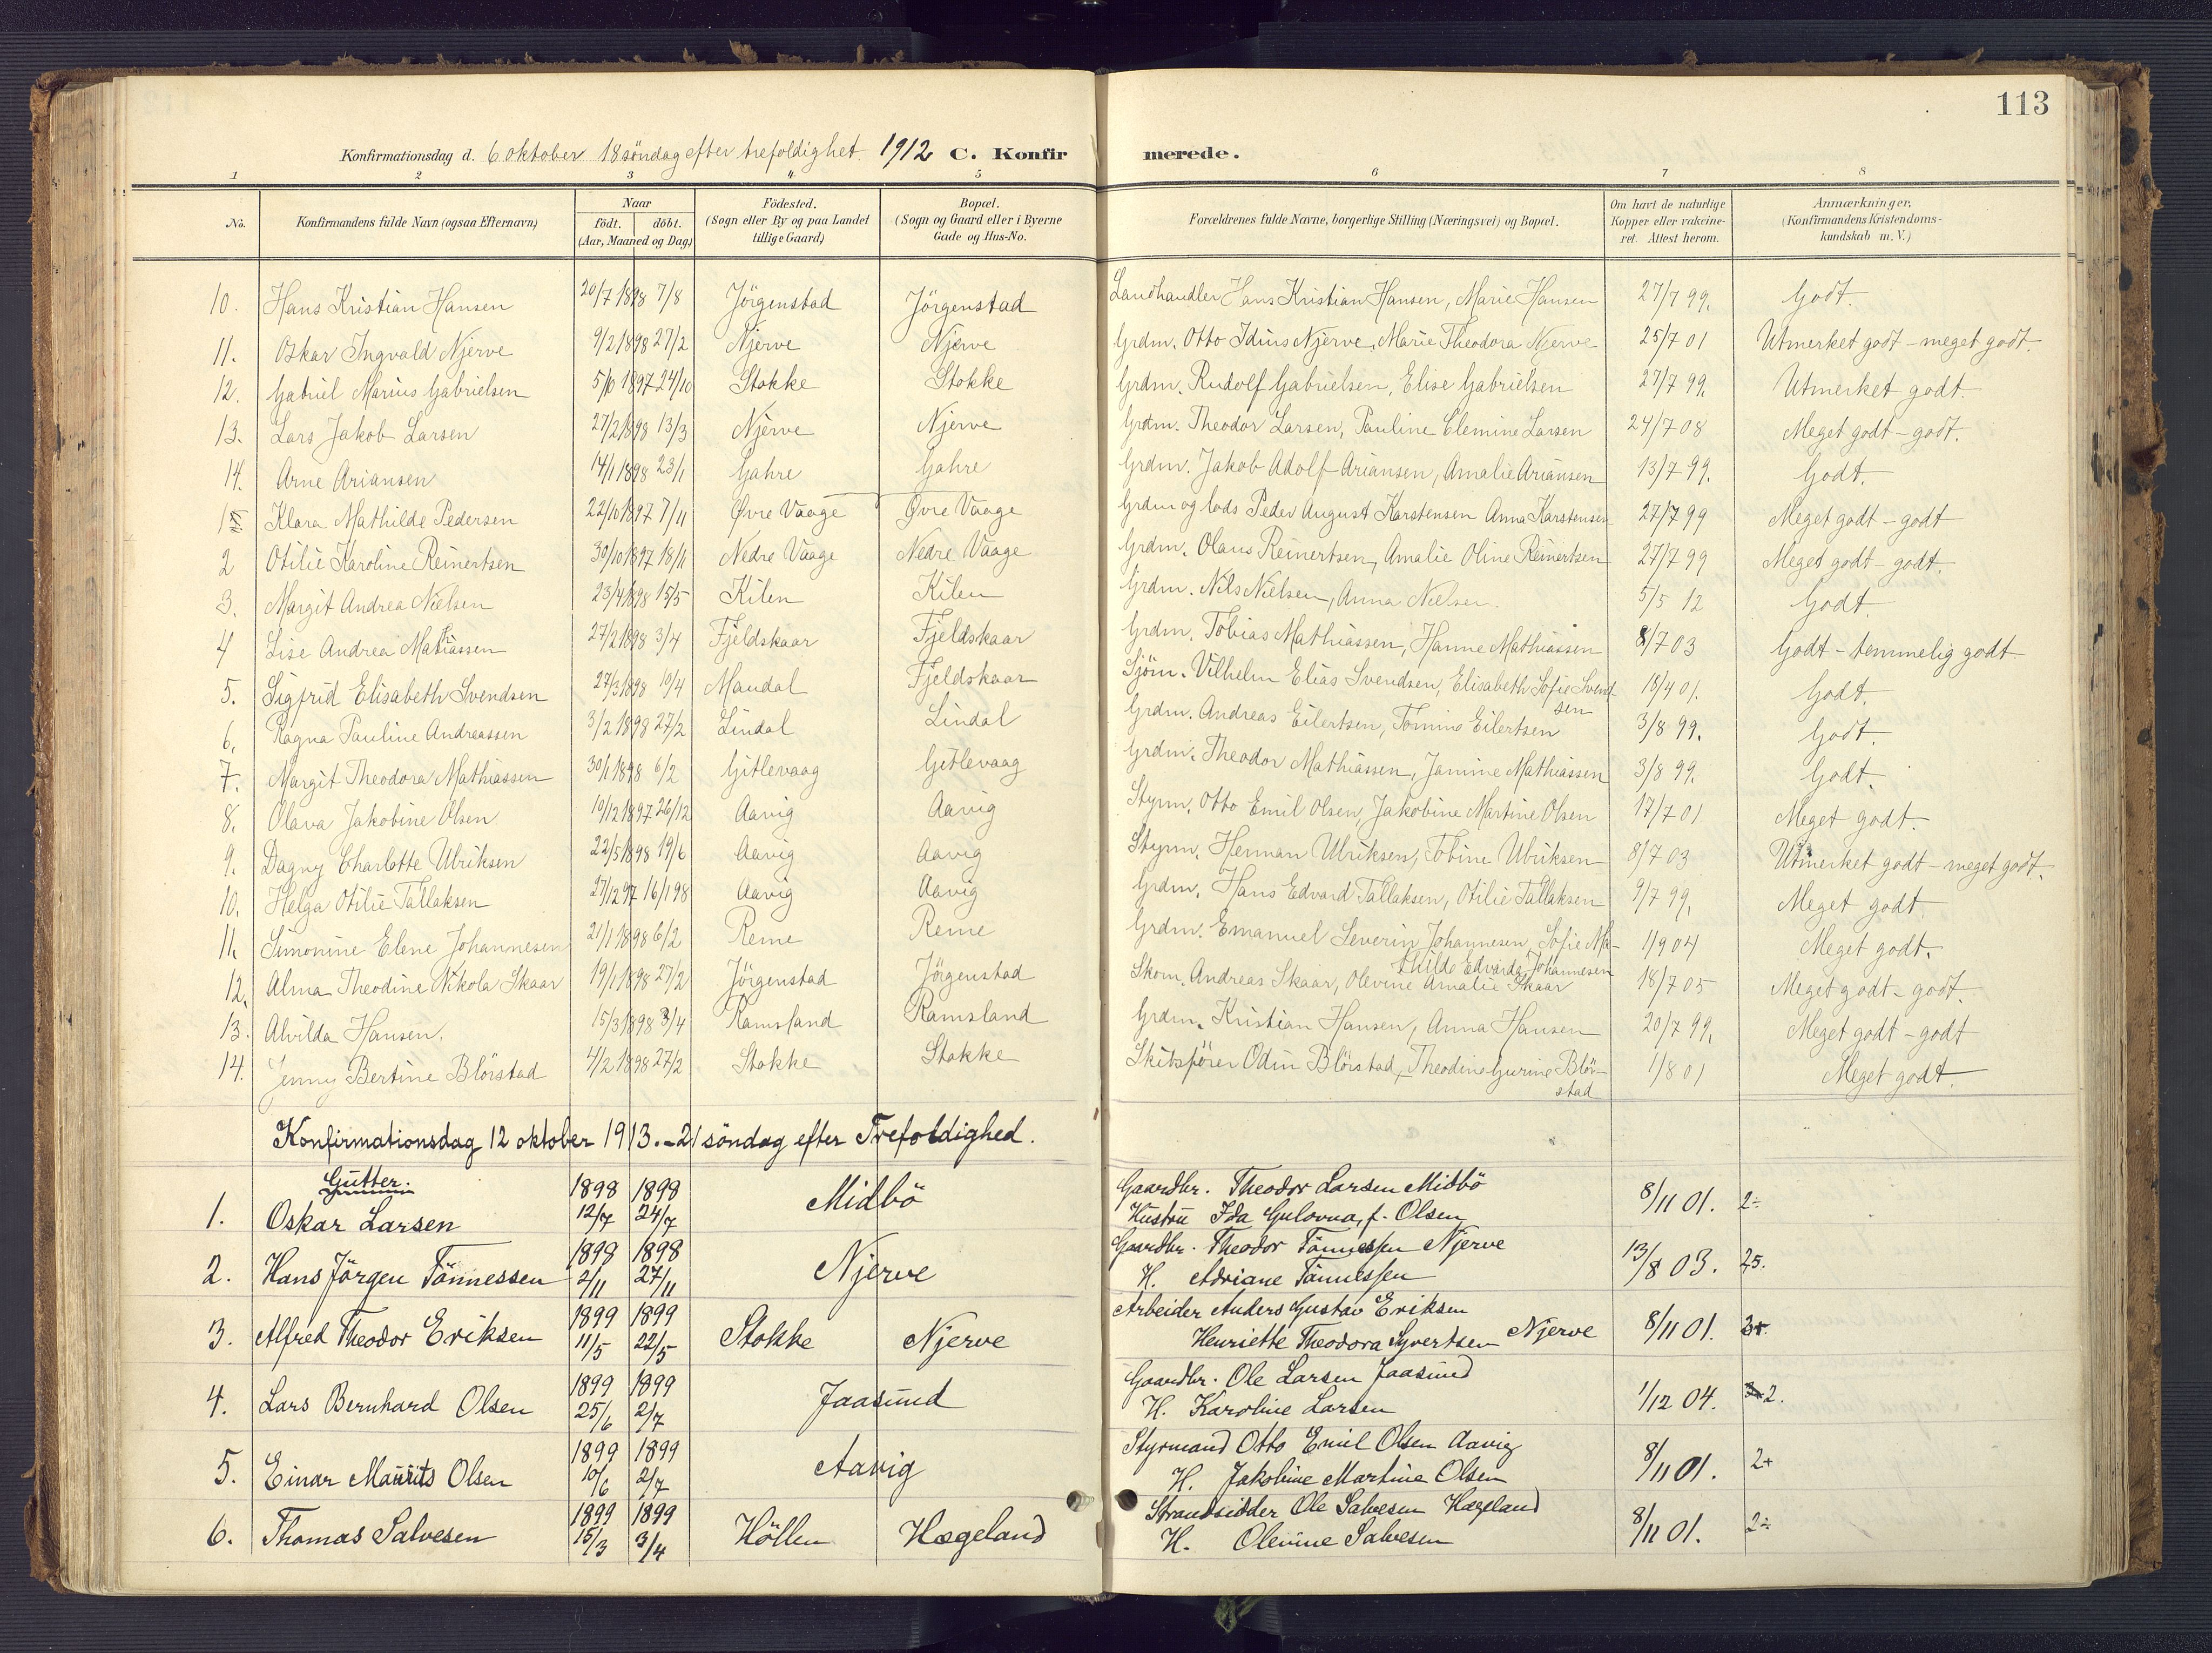 113
Konfirmationsdag d. 6 oktober 18 söndag efter trefoldighet 1912 C. Konfirmerede.
1 2 3 4 5 6 7 8
No. Konfirmandens fulde Navn (ogsaa Efternavn) Naar födt. döbt. (Aar, Maaned og Dag.) Födested. (Sogn eller By og paa Landet tillige Gaard) Bopæl. (Sogn og Gaard eller i Byerne Gade og Hus-No. Forældrenes fulde Navne, borgerlige Stilling (Næringsvei) og Bopæl. Om havt de naturlige Kopper eller vakcineret. Attest herom. Anmærkninger. (Konfirmandens Kristendomskundskab m. V.)
10. Hans Kristian Hansen 20/7 1898 7/8 Jörgenstad Jörgenstad Landhandler Hans Kristian Hansen, Marie Hansen 27/7 99. Godt.
11. Oskar Ingvald Njerve 9/2 1898 27/2 Njerve Njerve Grdm. Otto Idius Njerve, Marie Theodora Njerve 25/7 01 Utmerket godt - meget godt.
12. Gabriel Marius Gabrielsen 5/10 1897 24/10 Stokke Stokke Grdm. Rudolf Gabrielsen, Elise Gabrielsen 27/7 99. Utmerket godt.
13. Lars Jakob Larsen 27/2 1898 13/3 Njerve Njerve Grdm. Theodor Larsen, Pauline Clemine Larsen 24/7 08 Meget godt - godt.
14. Arne Ariansen 14/1 1898 23/1 Gahre Gahre Grdm. Jakob Adolf Ariansen, Amalie Ariansen 13/7 99. Godt.
1 Klara Mathilde Pedersen 22/10 1897 7/11 Øvre Vaage Øvre Vaage Grdm og lods Peder August Karstensen Anna Karstensen 27/7 99 Meget godt - godt
2 Otilie Karoline Reinertsen 30/10 1897 18/11 Nedre Vaage Nedre Vaage Grdm. Olaus Reinertsen, Amalie Oline Reinertsen 27/7 99 Meget godt - godt.
3. Margit Andrea Nielsen 23/4 1898 15/5 Kilen Kilen Grdm. Nils Nielsen, Anna Nielsen. 5/5 12 Godt.
4 Lise Andrea Matiassen 27/2 1898 3/4 Fjeldskaar Fjeldskaar Grdm. Tobias Mathiassen, Hanne Mathiassen 8/7 03 Godt - temmelig godt
5. Sigfrid Elisabeth Svendsen 27/3 1898 10/4 Mandal Fjeldskaar Sjöm. Vilhelm Elias Svendsen, Elisabeth Sofie Svendsen 18/4 01. Godt.
6. Ragna Pauline Andreassen 3/2 1898 27/2 Lindal Lindal Grdm. Andreas Eilertsen, Tomine Eilertsen 3/8 99. Godt.
7. Margit Theodora Mathiassen 30/1 1898 6/2 Gitlevaag Gitlevaag Grdm. Theodor Mathiassen, Janine Mathiassen 3/8 99. Godt.
8. Olava Jakobine Olsen 10/12 1897 26/12 Aavig Aavig Styrm. Otto Emil Olsen, Jakobine Martine Olsen 17/7 01 Meget godt.
9. Dagny Charlotte Ulriksen 22/5 1898 19/6 Aavig Aavig Styrm. Herman Ulriksen, Tobine Ulriksen 8/7 03 Utmerket godt - meget godt.
10. Helga Otilie Tallaksen 27/12 97 16/1 98 Aavig Aavig Grdm. Hans Edvard Tallaksen, Otilie Tallaksen 9/7 99. Meget godt
11. Simonine Elene Johannesen 21/1 1898 6/2 Reme Reme Grdm. Emanuel Severin Johannesen, Sofie Mathilde Edvarda Johannesen 1/9 04 Meget godt.
12. Alma Theodine Nikola Skaar 19/1 1898 27/2 Jörgenstad Jörgenstad Skom. Andreas Skaar, Olevine Amalie Skaar 18/7 05 Meget godt - godt.
13. Alvilda Hansen. 15/3 1898 3/4 Ramsland Ramsland Grdm. Kristian Hansen, Anna Hansen 20/7 99. Meget godt - godt
14. Jenny Bertine Blörstad 4/2 1898 27/2 Stokke Stokke Skibsförer Odin Blörstad, Theodine Gurine Blörstad 1/8 01 Meget godt.
Konfirmationsdag 12 oktober 1913. - 21 söndag efter Trefoldighed.
Gutter.
1. Oskar Larsen 1898 12/7 1898 24/7 Midbö Gaardbr. Theodor Larsen Midbö Hustru Ida Gulovna, f. Olsen 8/11 01. 2÷
2. Hans Jörgen Tönnessen 1898 2/11 1898 27/11 Njerve Gaardbr. Theodor Tönnessen Njerve H. Adriane Tönnessen 13/8 03. 2,5.
3. Alfred Theodor Eriksen 1899 11/5 1899 22/5 Stokke Njerve Arbeider Anders Gustav Eriksen Henriette Theodora Syvertsen Njerve 8/11 01.
4. Lars Bernhard Olsen 1899 25/6 1899 2/7 Jaasund Gaardbr. Ole Larsen Jaasund H. Karoline Larsen 1/12 04. 2.
5. Einar Maurits Olsen 1899 10/6 1899 2/7 Aavig Styrmand Otto Emil Olsen Aavig H. Jakobine Martine Olsen 8/11 01. 2+
6. Thomas Salvesen 1899 15/3 1899 3/4 Höllen Hægeland Strandsidder Ole Salvesen Hægeland H. Olevine Salvesen 8/11 01. 2÷